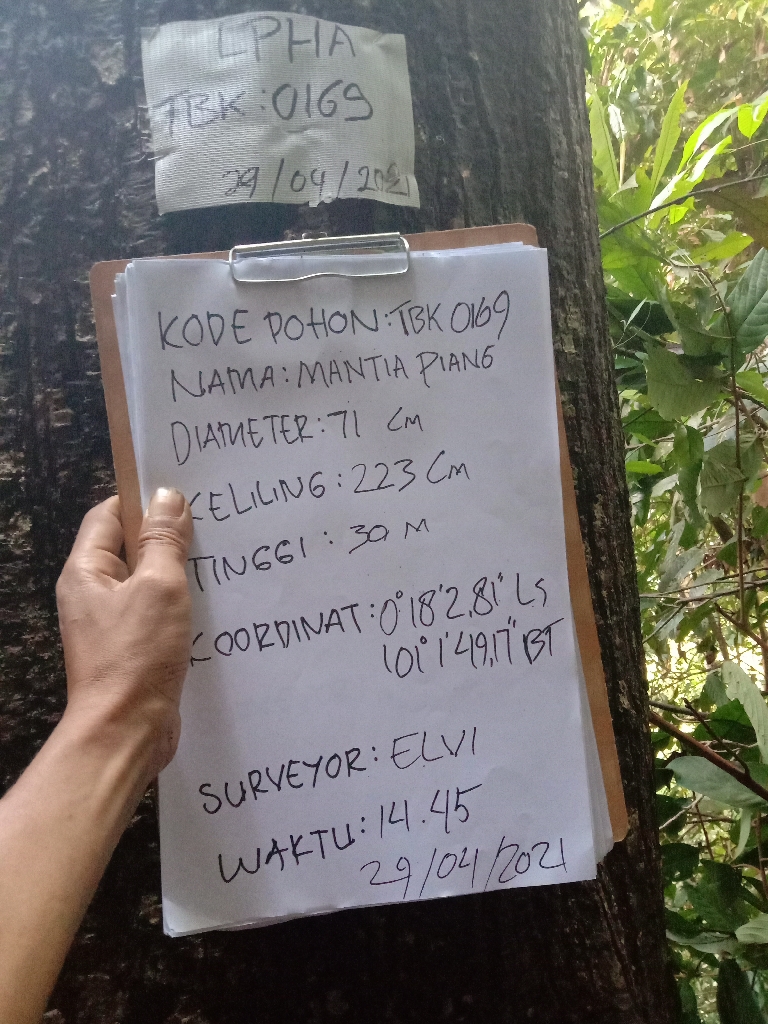 LPHA
TBK : 0169
29/04/2021
KODE POHON : TBK 0169
NAMA : MANTIA PIANG
DIAMETER : 71 Cm
KELILING : 223 Cm
TINGGI : 30 M
KOORDINAT : 0°18'2,81" LS
101°1'49,17" BT
SURVEYOR : ELVI
WAKTU : 14.45
29/04/2021